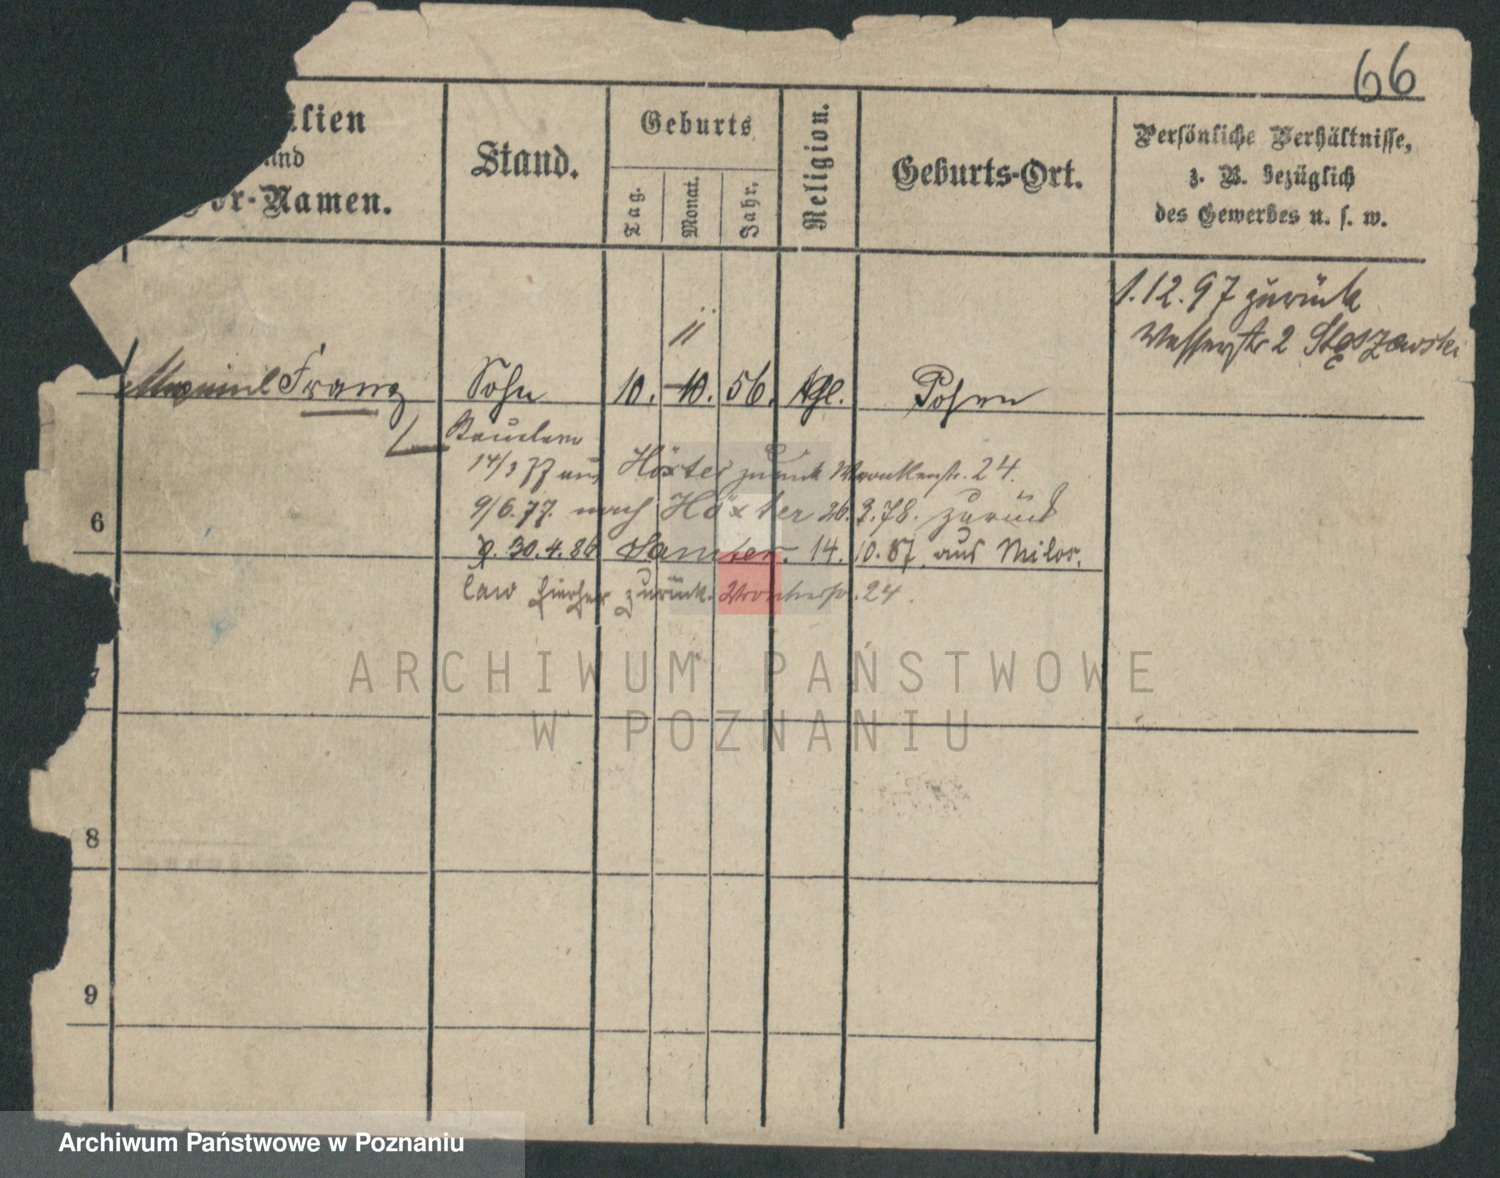 66
ilien
und
or-Namen.
Stand.
Geburts
Tag.
Monat.
Jahr.
Religion.
Geburts-Ort.
Persönliche Verhältnisse,
z. B. bezüglich
des Gewerbes u. s. w.
1.12.97 zurück
Wasserstr 2 Stęszewski
11
Franz Sohn 10. 10. 56. kgl. Posen
14/3 77 aus Höxter zurück Wronkerstr. 24.
6
9/6. 77. nach Höxter 26.9.78. zurück
30.4.86 Samter. 14.10.87. aus Milos
law hierher zurück. Wronkerstr. 24.
8
9
ARCHIWUM PAŃSTWOWE
W POZNANIU
Archiwum Państwowe w Poznaniu